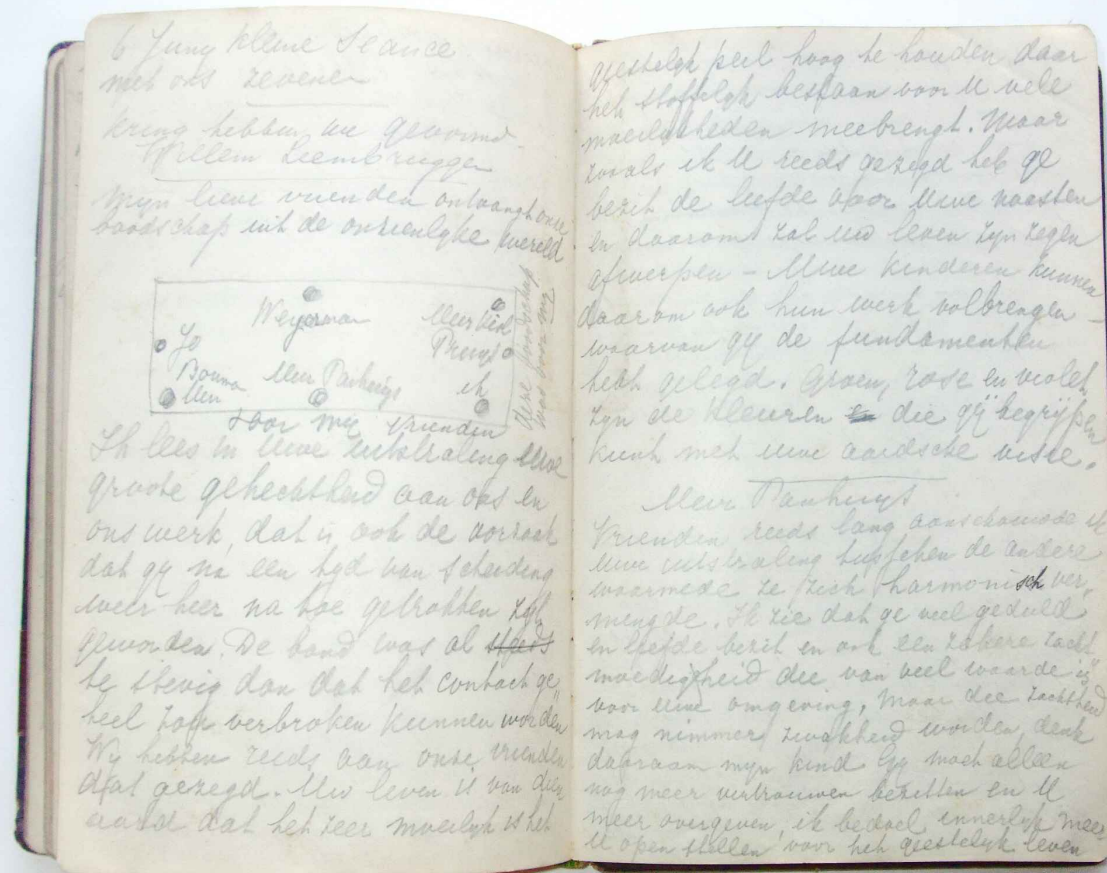 6 Juny Kleine Seance
met ons zevenen
Kring hebben we gevormd
Willem Leembruggen
Myn lieve vrienden ontvangt onze
boodschap uit de onzienlyke wereld
Weyerman
Mevr
Jo
Pruys
Bouma
Mevr Panhuys
ik
Mevr
deze boodschap
was voor my
voor my vrienden
Ik lees in Uwe uitstraling
groote gehechtheid aan ons en
ons werk, dat is ook de oorzaak
dat gy na een tyd van scheiding
weer heer na toe getrokken zyt
geworden. De band was al steeds
te stevig dan dat het contact ge„
heel zou verbroken kunnen worden
Wy hebben reeds aan onze vrienden
dat gezegd. Uw leven is van dien
aard dat het zeer moeilyk is het
geestelyk peil hoog te houden daar
het stoffelyk bestaan voor U vele
moeilykheden meebrengt. Maar
zooals ik U reeds gezegd heb ge
bezit de liefde voor Uwe naasten
en daarom zal uw leven zyn zegen
afwerpen – Uwe kinderen kunnen
daarom ook hun werk volbrengen –
waarvan gy de fundamenten
hebt gelegd. Groen, rose en violet
zyn de kleuren die gy begrypen
kunt met uwe aardsche visie.
Mevr Panhuys.
Vrienden reeds lang aanschouwde ik
Uwe uitstraling tusschen de andere
waarmede ze zich harmonisch ver„
mengde. Ik zie dat ge veel geduld
en liefde bezit en ook een zekere zacht„
moedigheid die van veel waarde is
voor Uwe omgeving, maar die zachtheid
mag nimmer zwakheid worden, denk
daaraan myn kind Gy moet alleen
nog meer vertrouwen bezitten en U
meer overgeven, ik bedoel innerlyk meer
U open stellen voor het geestelyk leven